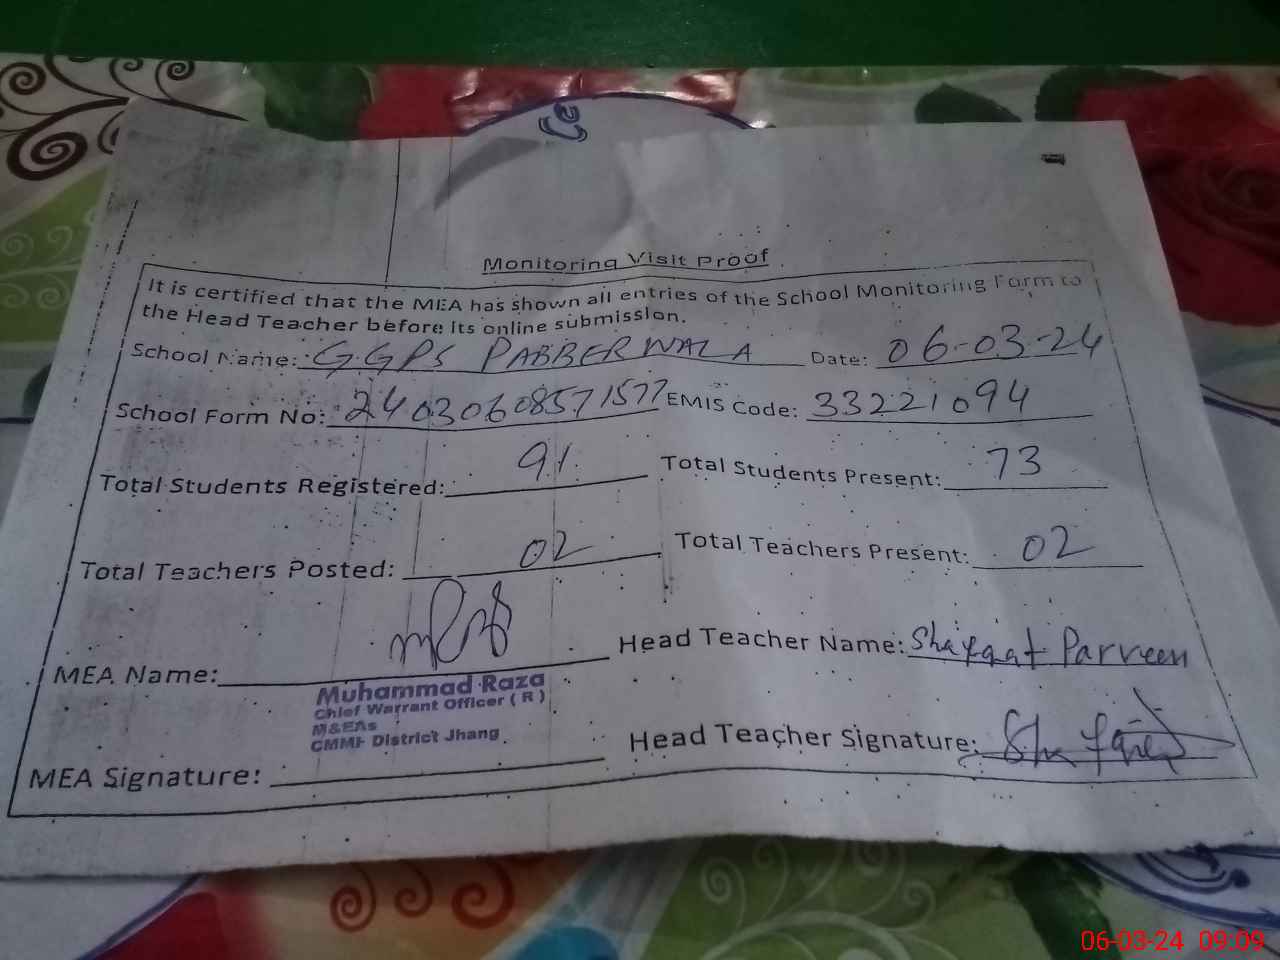 Monitoring Visit Proof
It is certified that the MEA has shown all entries of the School Monitoring Form to
the Head Teacher before its online submission.
School Name: G.GPS PABBERWALA Date: 06-03-24
School Form No: 24030608571577 EMIS Code: 33221094
Total Students Registered: 91 Total Students Present: 73
Total Teachers Posted: 02 Total Teachers Present: 02
MEA Name: Head Teacher Name: Shafqat Parveen
Muhammad Raza
Chief Warrant Officer ( R )
M&EAs
CMMF District Jhang
MEA Signature: Head Teacher Signature:
06-03-24 09:09